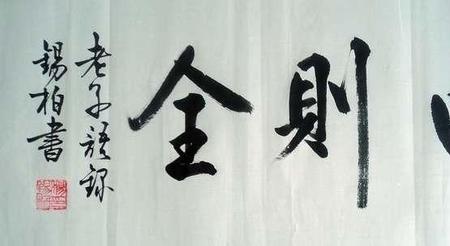 則全
老子語録
錫柏書